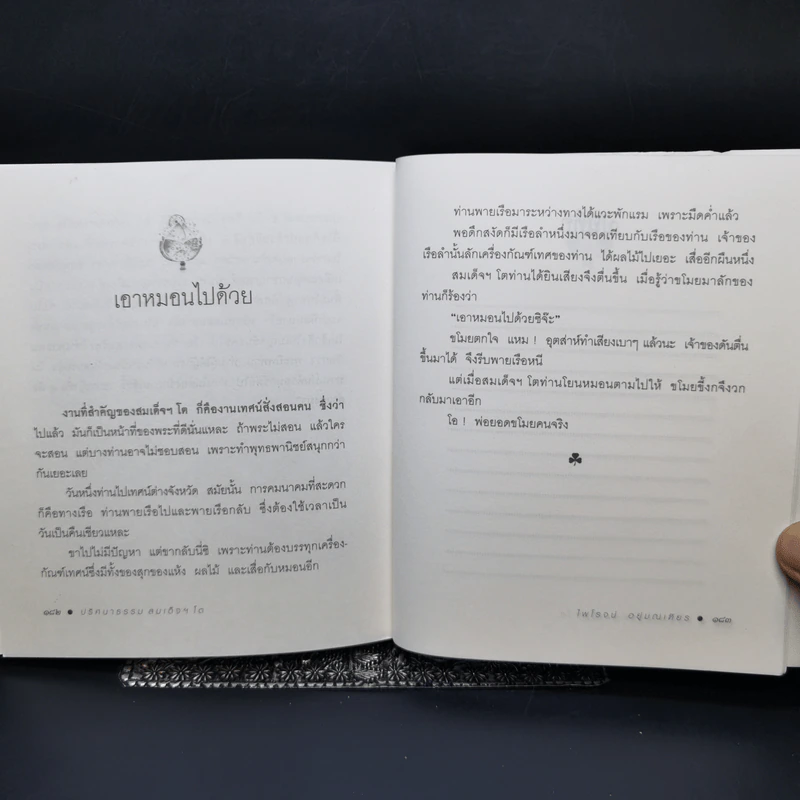 เอาหมอนไปด้วย
งานที่สำคัญของสมเด็จฯ โต ก็คืองานเทศน์สั่งสอนคน ซึ่งว่า
ไปแล้ว มันก็เป็นหน้าที่ของพระที่ดีนั่นแหละ ถ้าพระไม่สอน แล้วใคร
จะสอน แต่บางท่านอาจไม่ชอบสอน เพราะทำพุทธพานิชย์สนุกกว่า
กันเยอะเลย
วันหนึ่งท่านไปเทศน์ต่างจังหวัด สมัยนั้น การคมนาคมที่สะดวก
ก็คือทางเรือ ท่านพายเรือไปและพายเรือกลับ ซึ่งต้องใช้เวลาเป็น
วันเป็นคืนเชียวแหละ
ขาไปไม่มีปัญหา แต่ขากลับนี่ซิ เพราะท่านต้องบรรทุกเครื่อง-
กัณฑ์เทศน์ซึ่งมีทั้งของสุกของแห้ง ผลไม้ และเสื่อกับหมอนอีก
๑๘๒ ● ปริศนาธรรม สมเด็จฯ โต
ท่านพายเรือมาระหว่างทางได้แวะพักแรม เพราะมืดค่ำแล้ว
พอดึกสงัดก็มีเรือลำหนึ่งมาจอดเทียบกับเรือของท่าน เจ้าของ
เรือลำนั้นลักเครื่องกัณฑ์เทศของท่าน ได้ผลไม้ไปเยอะ เสื่ออีกผืนหนึ่ง
สมเด็จฯ โตท่านได้ยินเสียงจึงตื่นขึ้น เมื่อรู้ว่าขโมยมาลักของ
ท่านก็ร้องว่า
“เอาหมอนไปด้วยซิจ๊ะ”
ขโมยตกใจ แหม ! อุตส่าห์ทำเสียงเบาๆ แล้วนะ เจ้าของดันตื่น
ขึ้นมาได้ จึงรีบพายเรือหนี
แต่เมื่อสมเด็จฯ โตท่านโยนหมอนตามไปให้ ขโมยขี้งกจึงวก
กลับมาเอาอีก
โอ ! พ่อยอดขโมยคนจริง
ไพโรจน์ อยู่มณเฑียร ● ๑๘๓